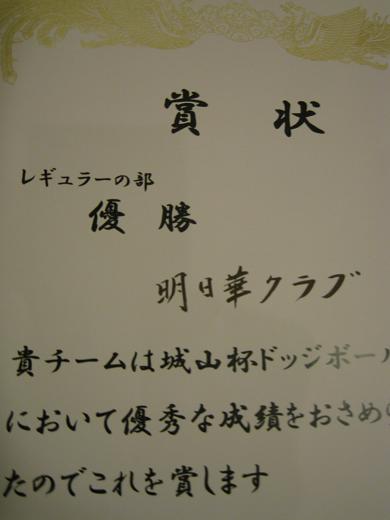 賞状
レギュラーの部
優勝
明日華クラブ
貴チームは城山杯ドッジボール
において優秀な成績をおさめ
たのでこれを賞します